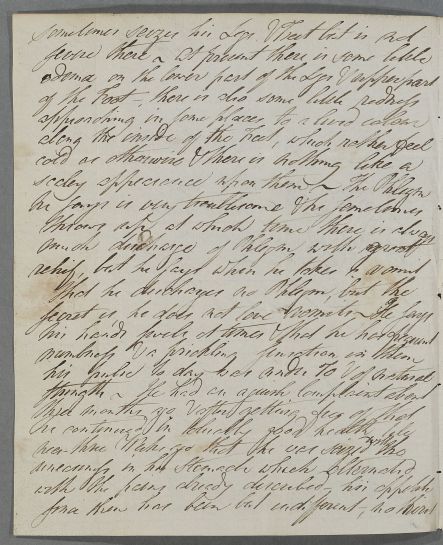 sometimes seizes his Legs & Feet but is not
severe there ~ at present there is some little
Œdema on the lower part of the Legs & upper part
of the Foot —, there is also some little redness
approaching in some places to a livid colour
along the inside of the Feet, which rather feel
cold as otherwise & there is nothing like a
scaley appearance upon them ~ The Phlegm
he says is very troublesome & he sometimes
throws up, at which time there is always
much discharge of Phlegm with great
relief, but he says when he takes a vomit
that he discharges no Phlegm, but the
secret is he does not love Vomits ~ He says
his hands swells at times & that he has
numbness & a prickling sensation in them
his pulse to day was under 70 & of natural
strength ~ He had an aguish complaint about
three months ago & after getting free of that
he continued in tolerable good health
three Weeks ago that he was seized with
uneasiness in his Stomach which alternated
with the pains already described, his appetite
since then has been but indifferent, no thirst